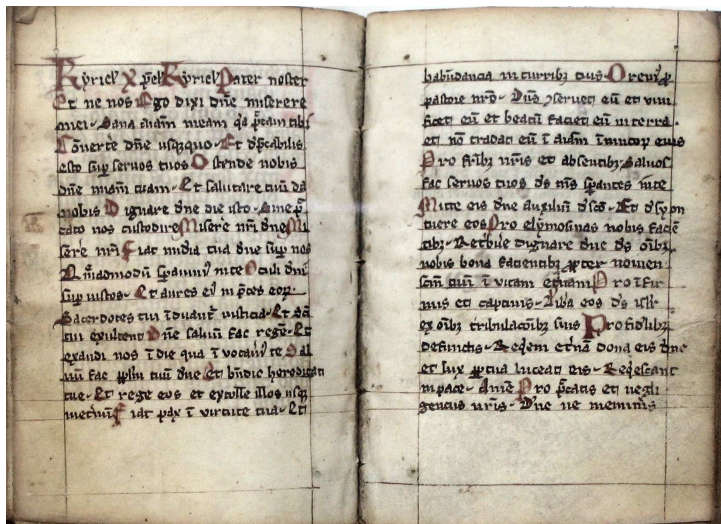 Kyriel' Xpel' Kyriel' Pater noster
Et ne nos Ego dixi dñe miserere
mei. Sana aīam meam qa peccaui tibi
Conuerte dñe usqquo. Et dpcabilis
esto sup seruos tuos Ostende nobis
dñe miam tuam. Et salutare tuū da
nobis Dignare dñe die isto. Sine pc
cato nos custodire Miserere nrī dñe Mi
serere nrī Fiat mīdia tua dñe sup nos
Qmadmodū sperauimꝰ in te Oculi dnī
sup iustos. Et aures eiꝰ in pces eorꝝ.
Sacerdotes tui īduant iusticiā. Et scī
tui exultent Dñe saluū fac regē. Et
exaudi nos ī die qua īuocauimꝰ te Sal
uū fac pplm tuū dñe Et bndic heredita
tue. Et rege eos et extolle illos usq
in eternū Fiat pax ī uirtute tua. Et
habūdancia in turribꝫ tuis. Oremꝰ p
pastore nrō. Dñs ꝯseruet eū et uiui
ficet eū et beatū faciet eū in terra.
et nō tradat eū ī aīam īimicorꝝ eius
Pro fribꝫ nrīs et absentibꝫ. Saluos
fac seruos tuos ds ms sperantes in te
Mitte eis dñe auxiliū d scō. Et d syon
tuere eos Pro elymosinas nobis faciē
tibꝫ. Retribue dignare dñe ds oībꝫ
nobis bona facientibꝫ ppter nomen
scm tuū ī uitam eternam Pro īfir
mis et captiuis. Liba eos ds isrl'
ex oībꝫ tribulacōibꝫ suis Pro fidlibꝫ
defunctis. Reqem eternā dona eis dñe
et lux ppetua luceat eis. Reqescant
in pace. Amē Pro pccatis et negli
genciis nrīs. Dñe ne memineris